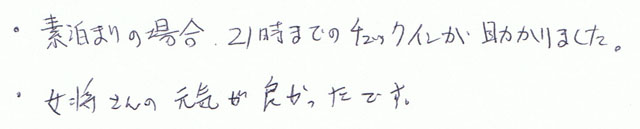 ・素泊まりの場合、21時までのチェックインが助かりました。
・女将さんの元気が良かったです。